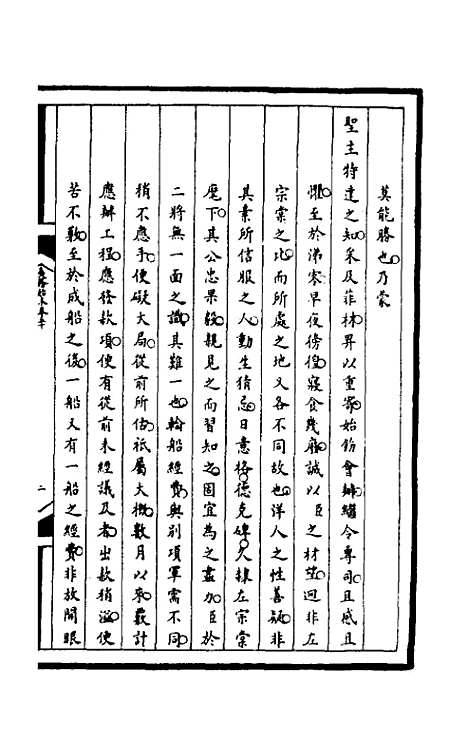 莫能勝也乃蒙
聖主特達之知采及菲材畀以重寄始飭會辦繼令專司且感且
懼至於涕零早夜傍徨寢食幾廢誠以臣之材望迥非左
宗棠之地而所處之地又各不同故也洋人之性善疑非
其素所信服之人動生猜忌日意格德克碑久隸左宗棠
麾下其公忠果毅親見之而習知之固宜為之盡加臣於
二將無一面之識其難一也輪船經費與別項軍需不同
稍不應手便礙大局從前所估祇屬大概數月以來覈計
應辦工程應發款項便有從前未經議及者出款稍溢便
苦不敷至於成船之後一船又有一船之經費非放開眼
二